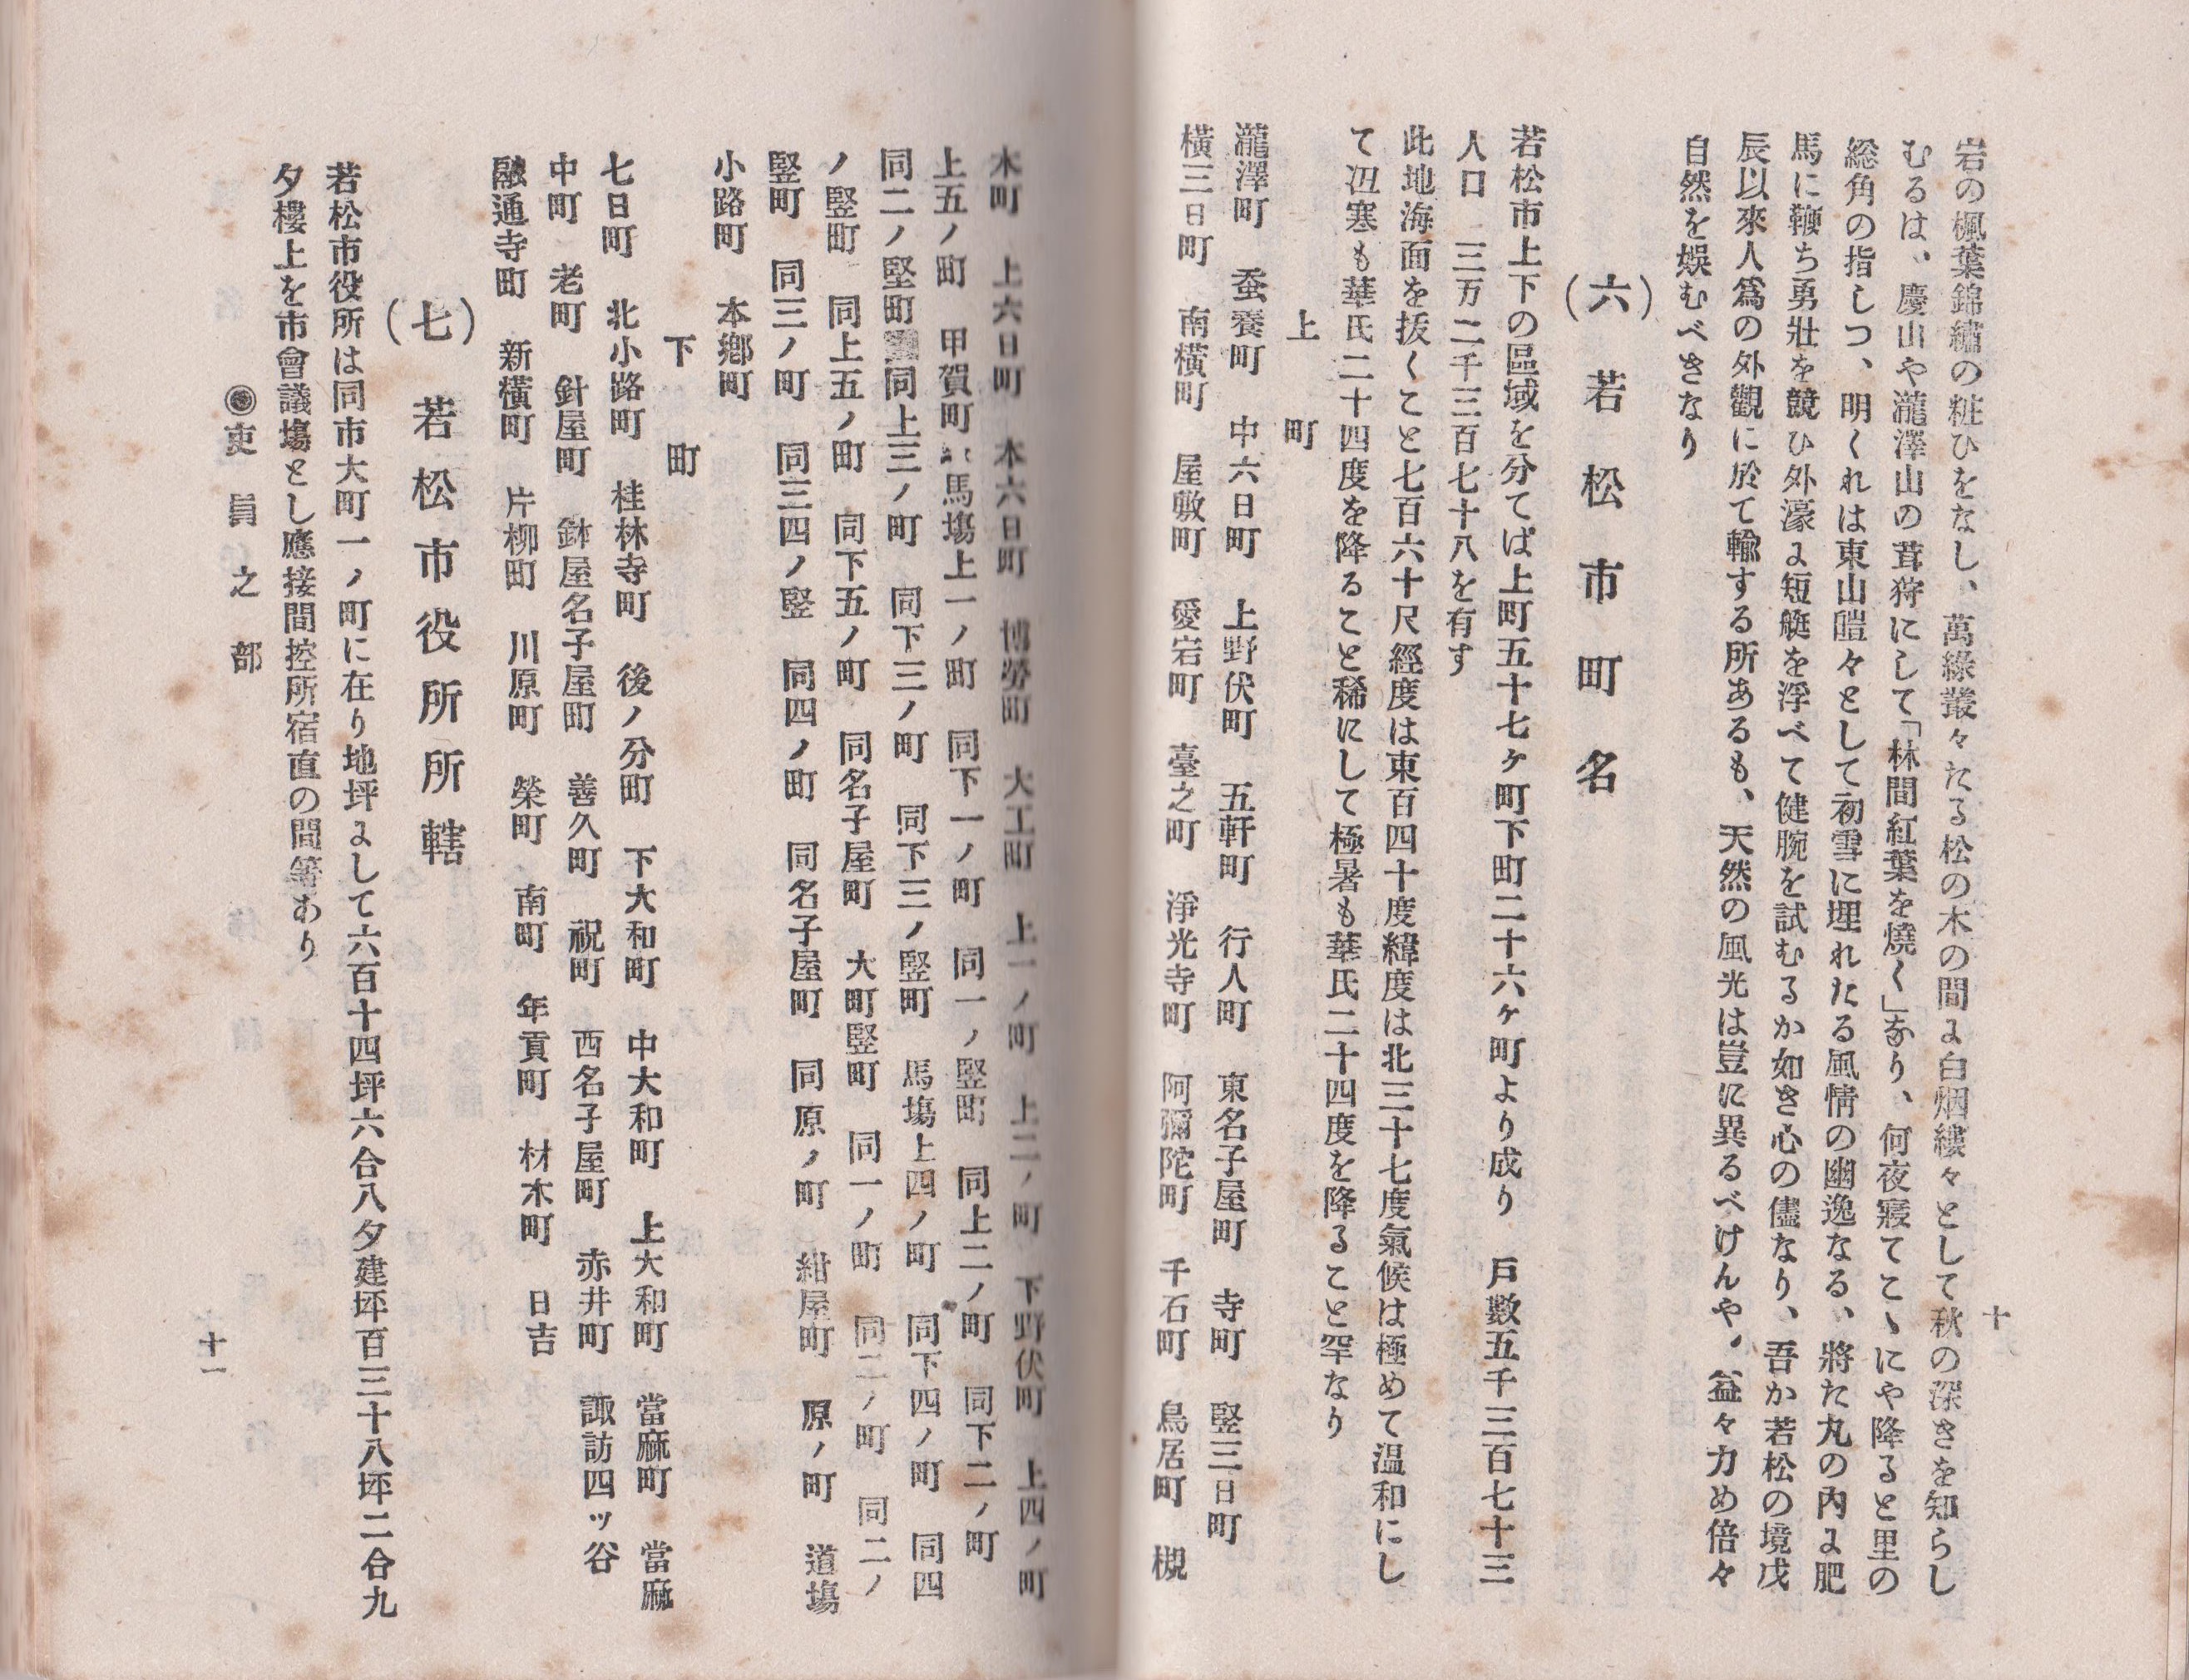 十
岩の楓葉錦繡の粧ひをなし、萬綠叢々たる松の木の間に白烟縷々として秋の深きを知らし
むるは、慶山や瀧澤山の茸狩にして「林間紅葉を燒く」なり、何夜寢てこゝにや降ると里の
総角の指しつ、明くれは東山皚々として初雪に埋れたる風情の幽逸なる、將た丸の內に肥
馬に鞭ち勇壯を競ひ外濠に短艇を浮べて健腕を試むるか如き心の儘なり、吾か若松の境戊
辰以來人爲の外觀に於て輸する所あるも、天然の風光は豈に異るべけんや、益々力め倍々
自然を娯むべきなり
(六) 若松市町名
若松市上下の區域を分てば上町五十七ヶ町下町二十六ヶ町より成り 戶數五千三百七十三
人口 三万二千三百七十八を有す
此地海面を抜くこと七百六十尺經度は東百四十度緯度は北三十七度氣候は極めて温和にし
て沍寒も華氏二十四度を降ること稀にして極暑も華氏二十四度を降ること罕なり
上町
瀧澤町 蚕養町 中六日町 上野伏町 五軒町 行人町 東名子屋町 寺町 堅三日町
橫三日町 南橫町 屋敷町 愛宕町 臺之町 淨光寺町 阿彌陀町 千石町 鳥居町 槻
木町 上六日町 本六日町 博勞町 大工町 上一ノ町 上二ノ町 下野伏町 上四ノ町
上五ノ町 甲賀町 馬塲上一ノ町 同下一ノ町 同一ノ竪町 同上二ノ町 同下二ノ町
同二ノ堅町 同上三ノ町 同下三ノ町 同下三ノ竪町 馬塲上四ノ町 同下四ノ町 同四
ノ竪町 同上五ノ町 同下五ノ町 同名子屋町 大町竪町 同一ノ町 同二ノ町 同二ノ
竪町 同三ノ町 同三四ノ竪 同四ノ町 同名子屋町 同原ノ町 紺屋町 原ノ町 道塲
小路町 本鄕町
下町
七日町 北小路町 桂林寺町 後ノ分町 下大和町 中大和町 上大和町 當麻町 當麻
中町 老町 針屋町 鉢屋名子屋町 善久町 祝町 西名子屋町 赤井町 諏訪四ッ谷
融通寺町 新橫町 片柳町 川原町 榮町 南町 年貢町 材木町 日吉
(七) 若松市役所所轄
若松市役所は同市大町一ノ町に在り地坪にして六百十四坪六合八夕建坪百三十八坪二合九
夕樓上を市會議塲とし應接間控所宿直の間等あり
◉吏員之部
十一